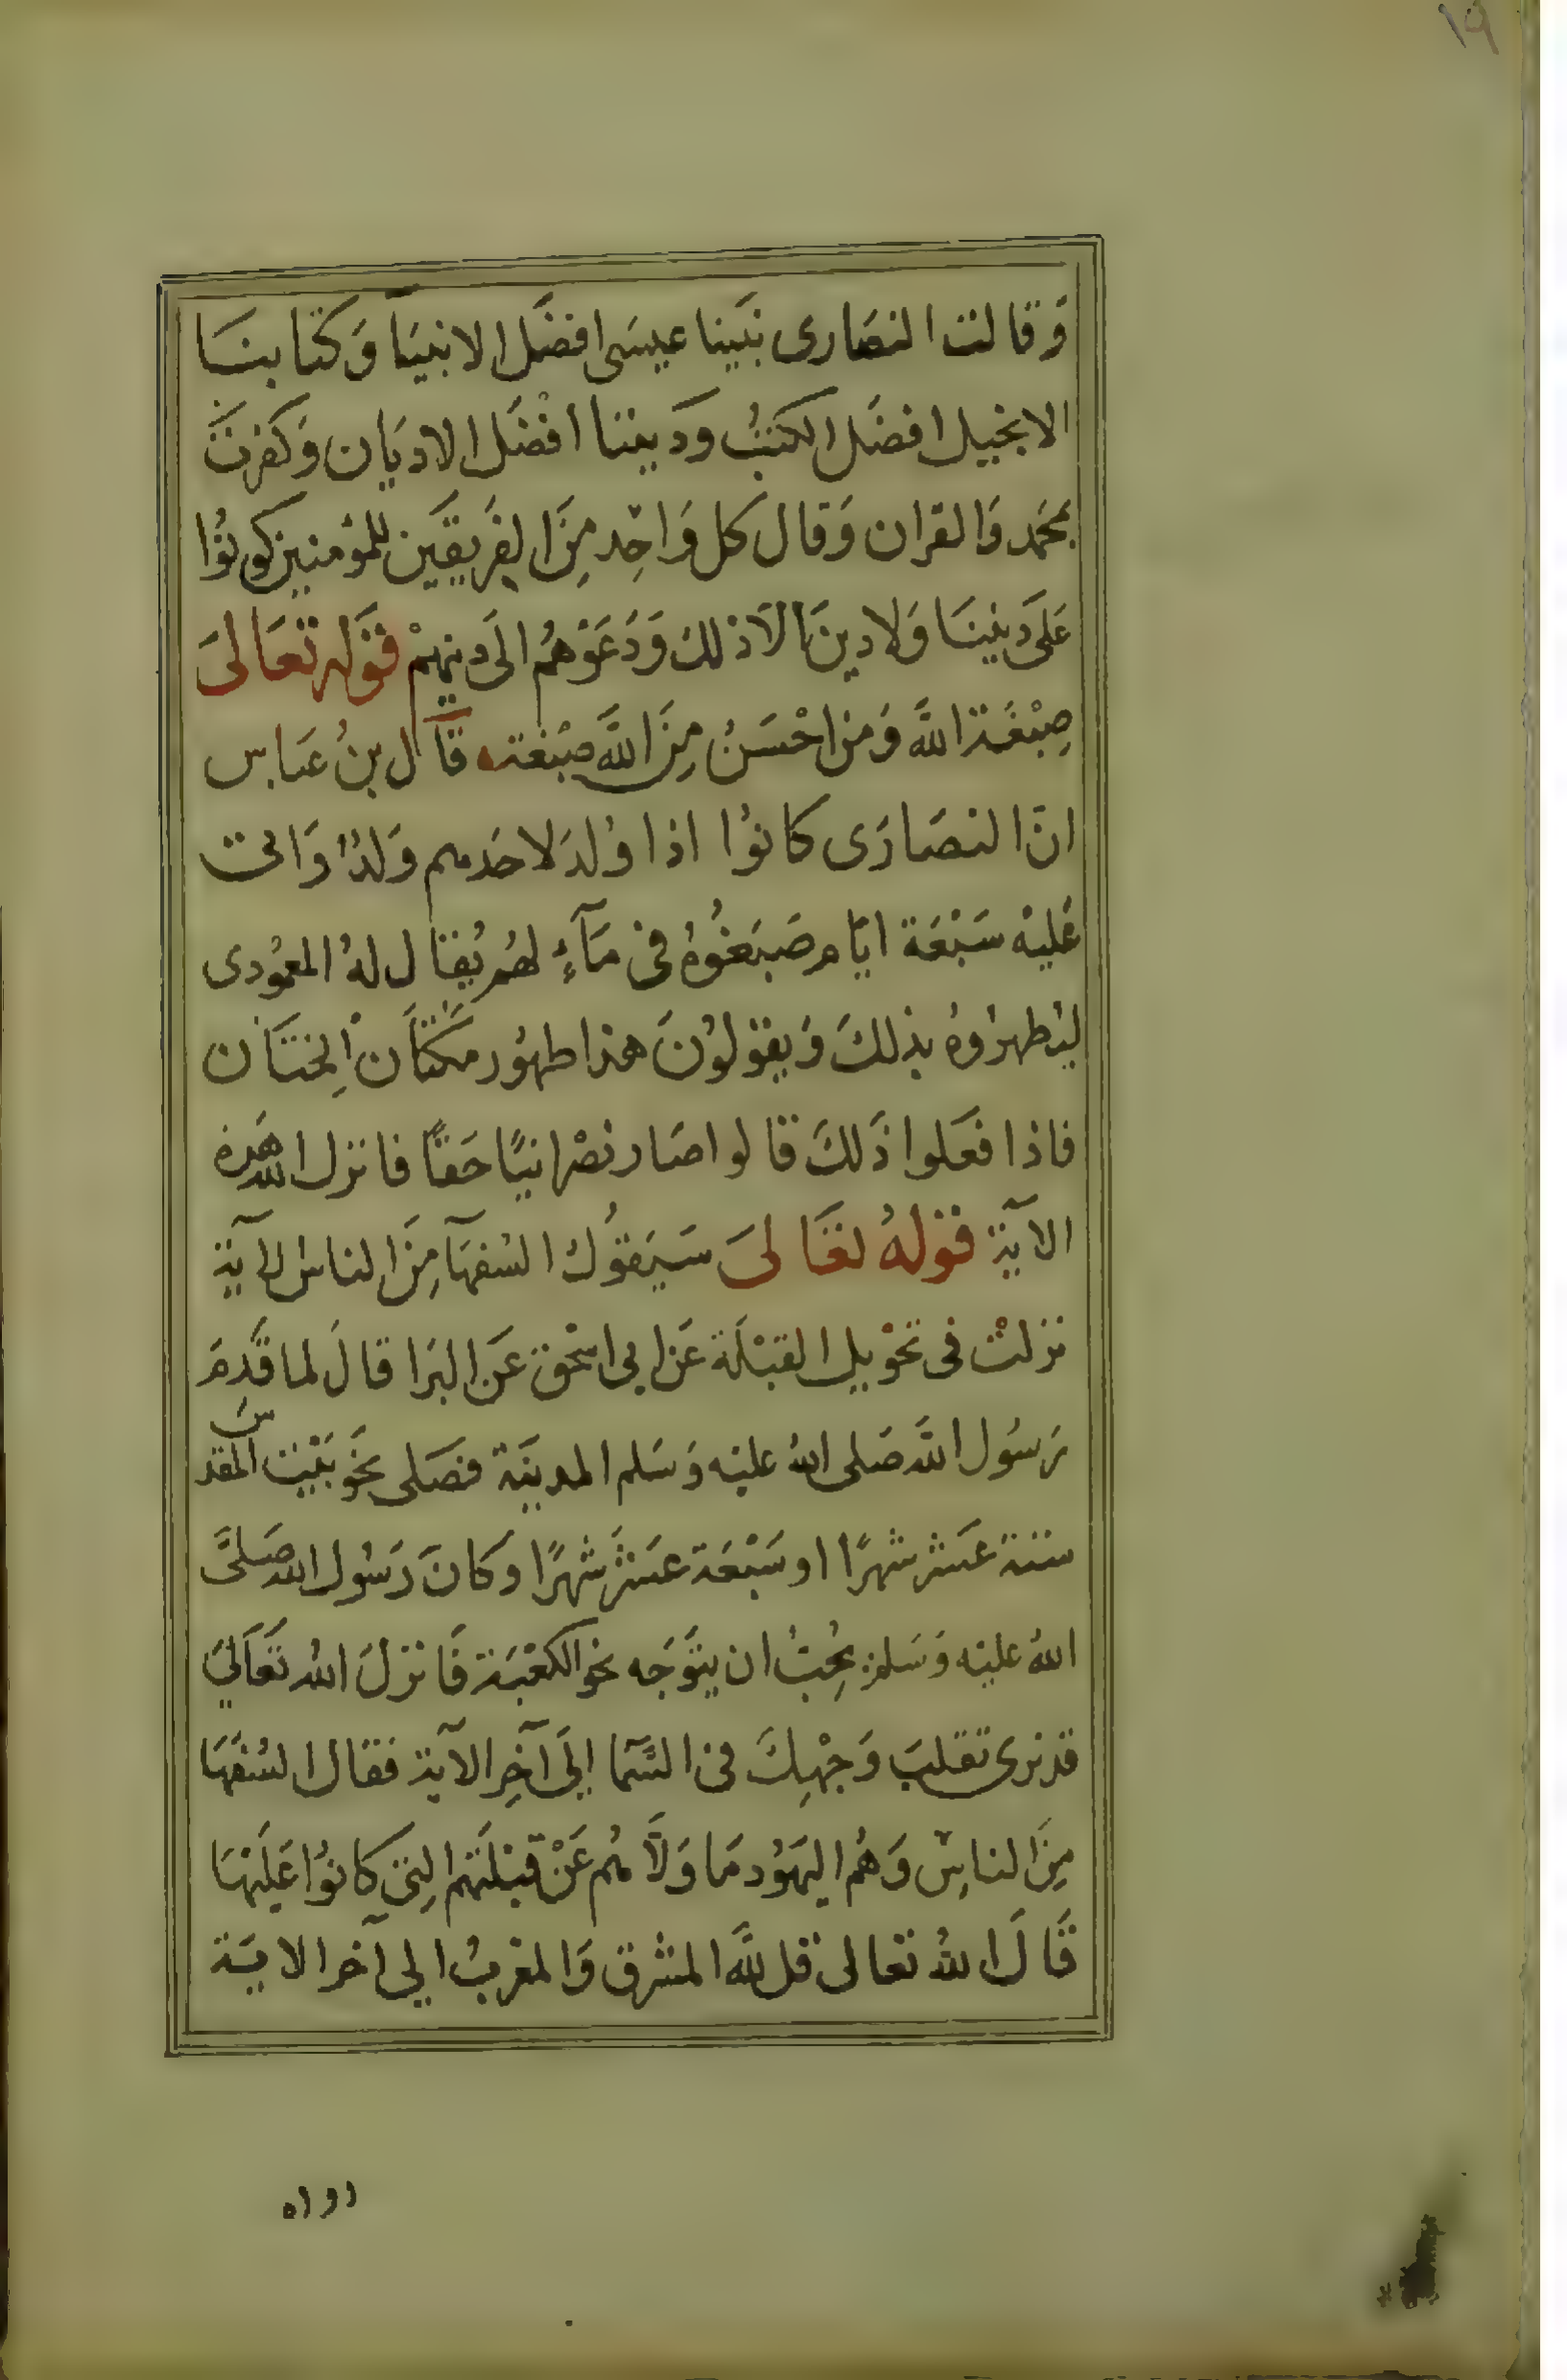 ١٩
وَقالت النصَارى نبَينا عيسَى افضَل الانبيَآ وَكتابنَا
الانجيل افضَل الكتبُ ودَيننا افْضَل الاديَان وَكفرتَ
بمحَمد وَالقران وَقال كل وَاحِد مِنَ الفَريقَين للمؤمنين كونوُا
عَلىَ دَيننَا وَلا دينَ الاَ ذلك وَدَعَوْهُم الىَ دينهمْ قوَله تعَالىَ
صِبْغَة اللَّه وَمن احْسَنُ مِنَ اللَّه صِبْغة قَآل بنُ عَباس
انَّ النصَارَى كانوُا اذا وُلدَ لاحَدهم وَلدٌ وَاتى
عَليْه سَبْعَة ايَّام صَبَغُوُهُ فى مَآءٍ لهُم يُقال لهُ المعمُودى
ليُطهرُوهُ بذلكَ وَيقولوُنَ هذا طهوُر مَكَان اِلختَان
فاذا فعَلوا ذَلكَ قالوا صَار نصْرانيًا حَقًا فانزل الله هَذه
الآية قوْلهُ تعَالىَ سَيَقوُل السُفهَآ مِنَ الناسُ الآية
نزلتْ فى تحْويل القبْلَة عَن ابى اسْحٰق عَن البَرا قالَ لما قَدِمَ
رَسوُل اللَّه صَلى اللهُ عليْه وَسَلم المدينَة فصَلى نحَو بَيْت المقدس
ستة عَشر شهرًا او سَبْعَة عشَر شَهرًا وكانَ رَسُول الله صَلىَّ
اللهُ عليْه وَسَلم يُحِبُ ان يتَوَجَه نحو الكعْبَة فَانزلَ اللهُ تَعَالىَ
قد نرى تقلبَ وَجْهِكَ فى السَّمَآ اِلىَ آخِر الآية فقال السُفَهَا
مِنَ الناسِ وَهُم اليَهوُد مَا وَلاَّهُم عَنْ قبْلتَهم التِى كانوُا عَليْهَا
قَالَ اللهُ تعَالى قل للَّه المشرق وَالمغربُ الى آخر الايَة
رواه